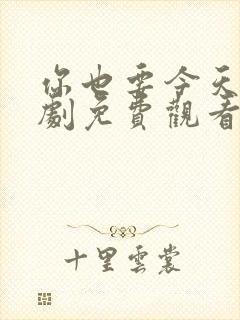 你也要今天
劇免費觀看
十里雲裳